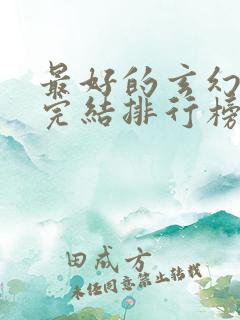 最好的玄幻
完结排行榜
田成方
未经同意禁止转载